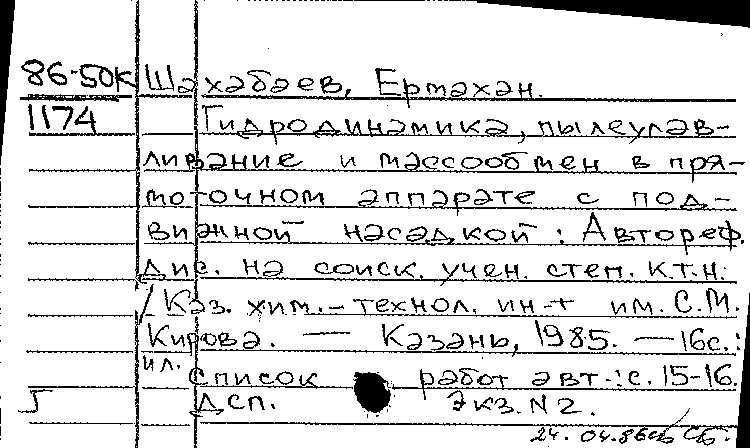 86-50к Шахабаев, Ермахан.
1174 Гидродинамика, пылеулав-
ливание и массообмен в пря-
моточном аппарате с под-
вижной насадкой: Автореф.
дис. на соиск. учен. степ. к.т.н.
/ Каз. хим.-технол. ин-т им. С.М.
Кирова. — Казань, 1985. — 16с.:
ил.
Список работ авт.: с. 15-16.
ДСП. Экз. N 2.
24.04.86